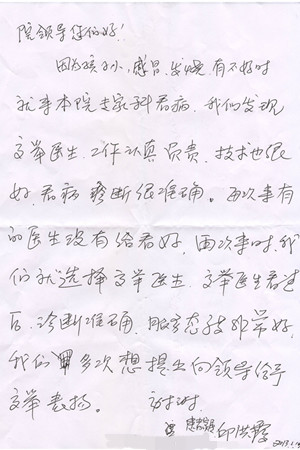 院领导您们好！
因为孩小，感冒、发烧、有不好时
就来本院专家科看病，我们发现
文举医生，工作认真负责，技术也很
好，看病诊断很准确。再次来有
的医生没有给看好，再次来时，我
们就选择文举医生，文举医生看过
后，诊断准确，服务态技非常好，
我们多次想提出向领导给予
文举表扬。 谢谢
患者家属 邱洪